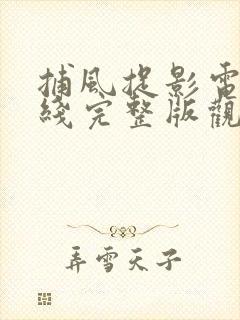 捕風捉影電
綫完整版觀
弄雪天子